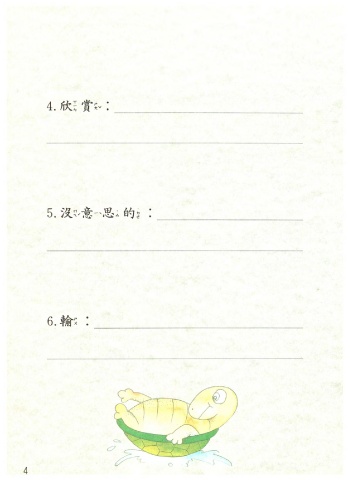 4.欣賞：
5.沒意思的：
6.輸：
4